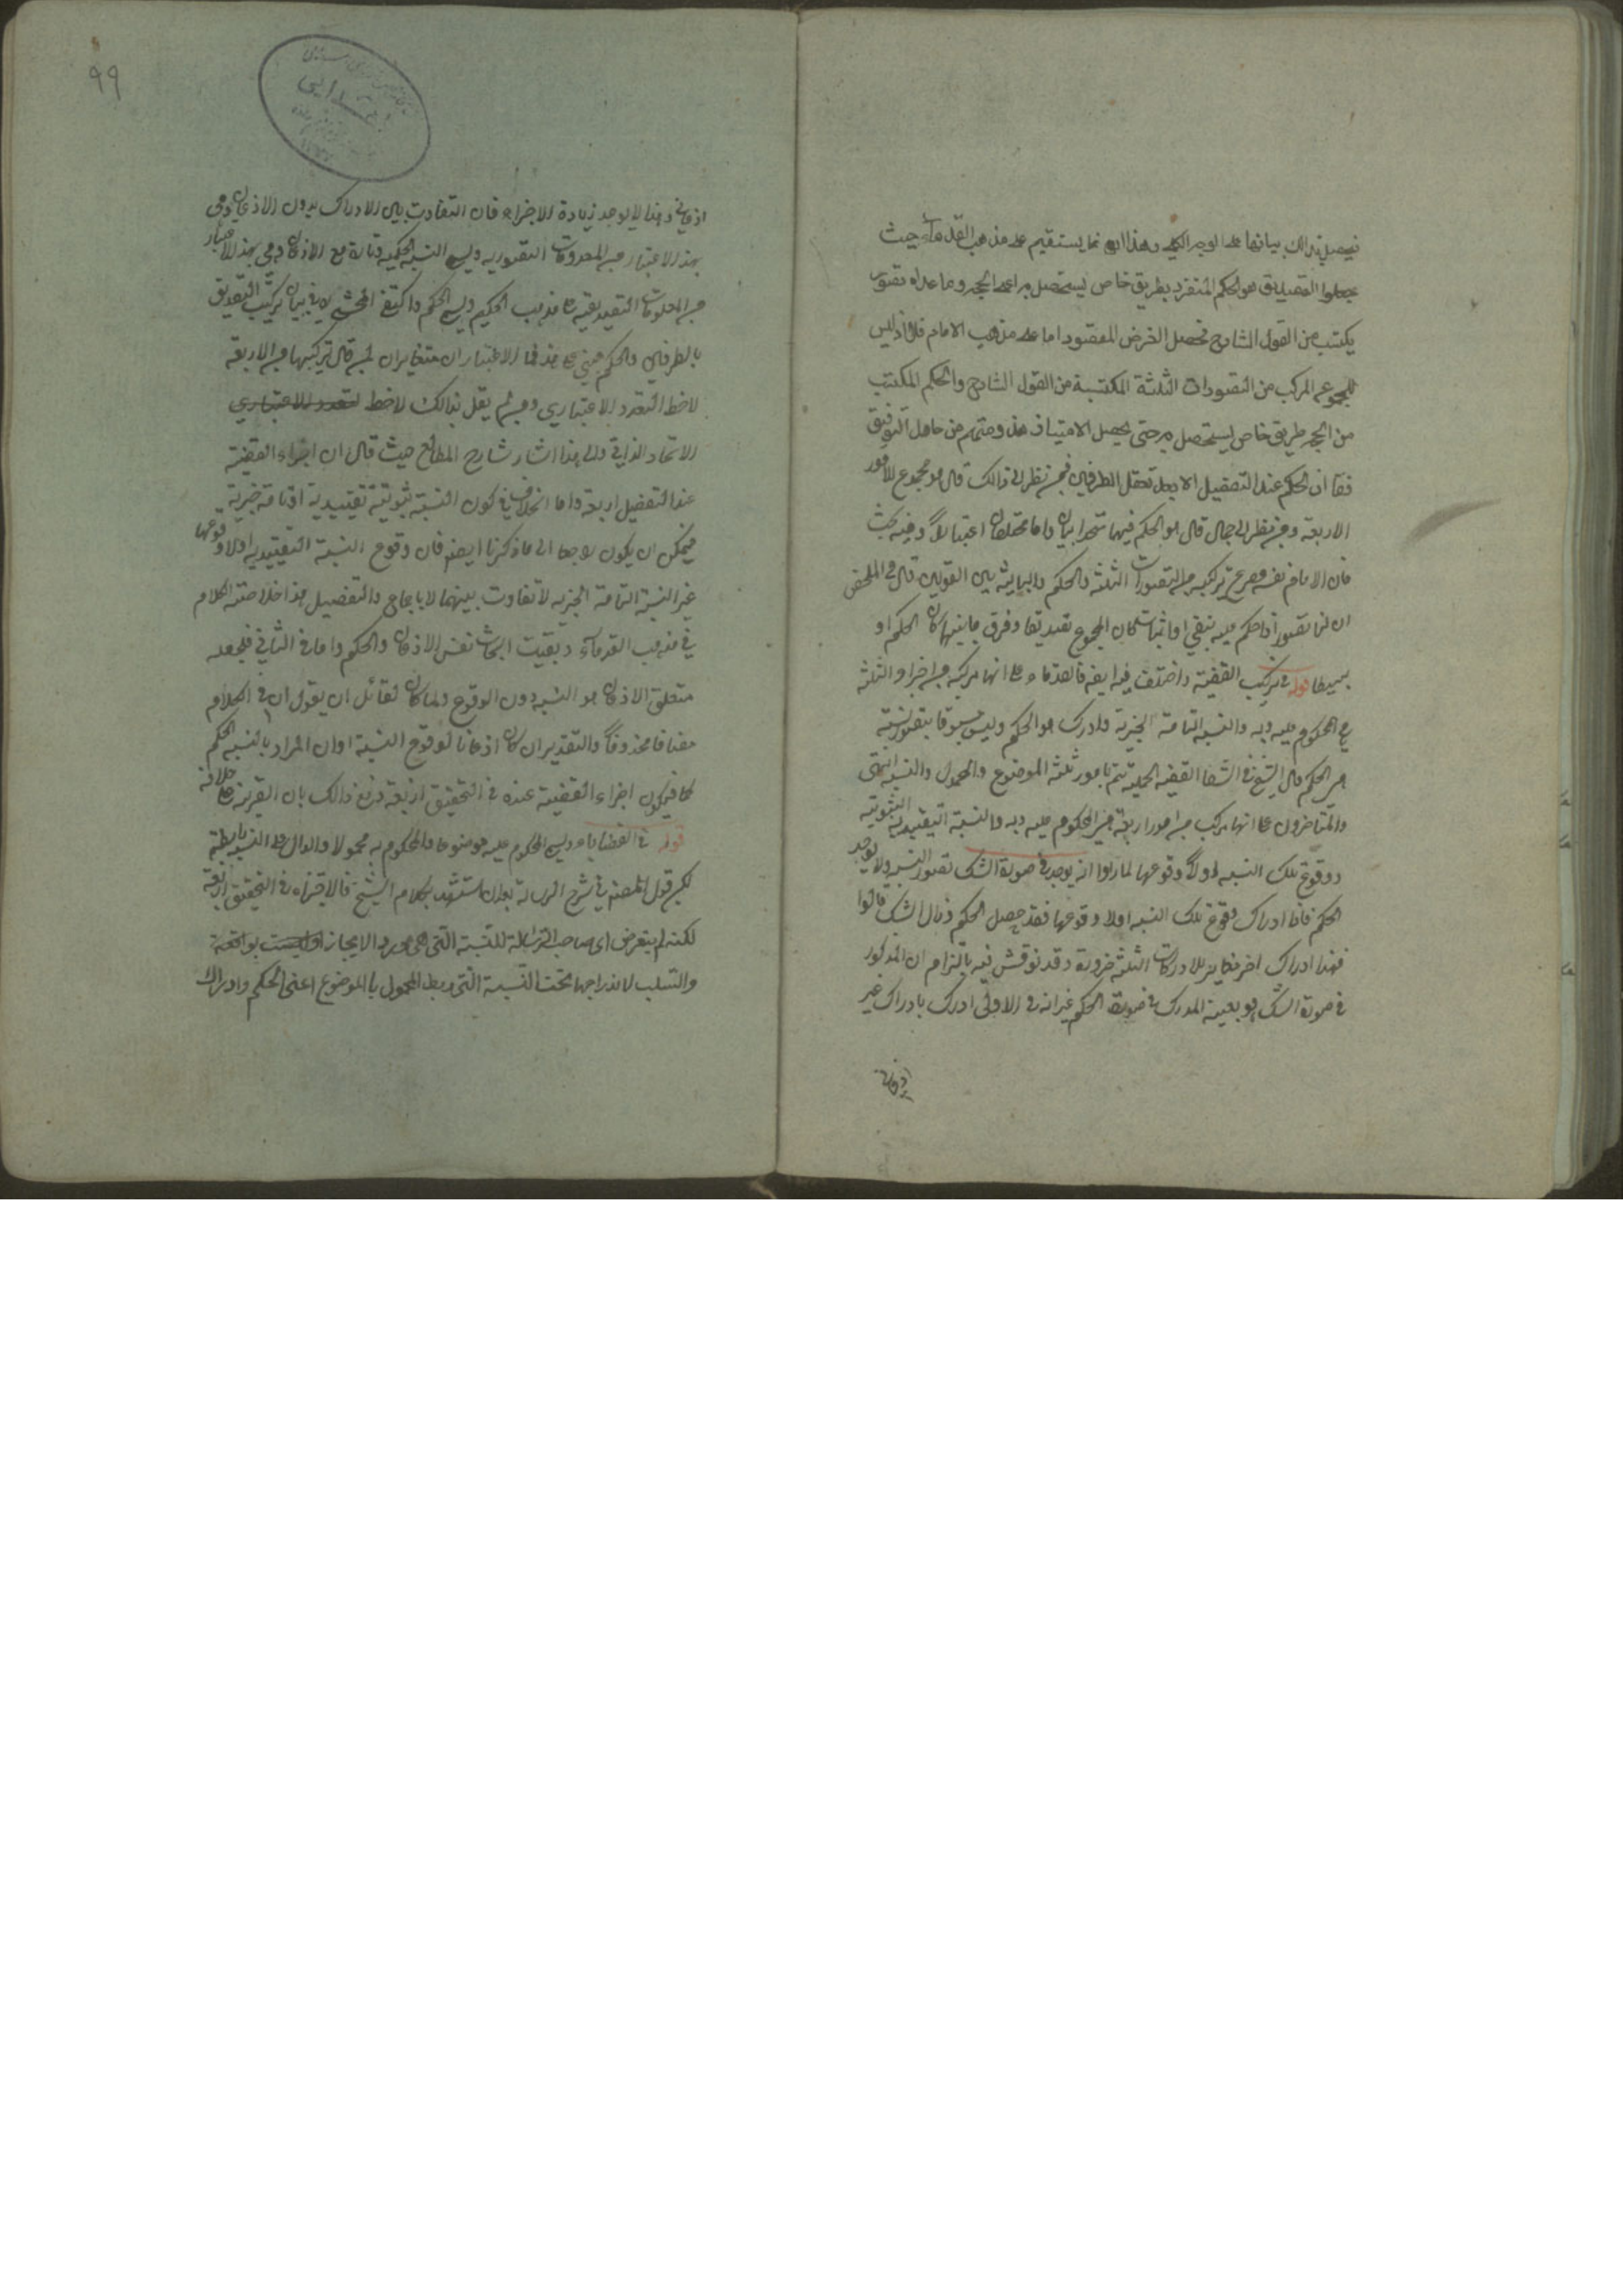 فيحصل بذالك بيانها على الوجه الكلى وهذا انما يستقيم على مذهب القدماء حيث
يجعلوا التصديق هو الحكم المتفرد بطريق خاص يستحصل به اعنى الحجه وما عداه تصور
يكتسب من القول الشارح فحصل الغرض المقصود اما على مذهب الامام فلا اذ ليس
للمجموع المركب من التصورات الثلثة المكتسبة من القول الشارح والحكم المكتسب
من الحجه طريق خاص يستحصل به حتى يحصل الامتياز هذا ومنهم من حاول التوفيق
فقال ان الحكم عند التفصيل الا بعد تعقل الطرفين فمن نظر الى ذالك قال هو مجموع الامور
الاربعة ومن نظر الى جمال قال هو الحكم فهما متحدان ذاتا مختلفان اعتبارا وفيه بحث
فان الامام نفسه صرح تركبه من التصورات الثلثه والحكم والمباينه بين القولين قال فى الملخص
ان لنا تصورا اذا حكم عليه بنفى او اثبات كان المجموع تصديقا وفرق ما بينهما كان الحكم او
بسيطا قوله فى تركيب القضية واختلف فيه ايضا فالقدماء على انها مركبه من اجزاء الثلثه
المحكوم عليه وبه والنسبه التامة الخبرية وادراك هو الحكم وليس مسبوقا بتصور نسبة
هى الحكم قال الشيخ فى الشفا القضيه الحملية تتم بامور ثلثه الموضوع والمحمول والنسبه انتهى
والمتاخرون على انها مركب من امور اربعة من المحكوم عليه وبه والنسبة التقييديه الثبوتيه
ووقوع تلك النسبه اولا وقوعها لما راوا انه يوجد فى صورة الشك تصور النسبه ولا يوجد
الحكم فاذا ادراك وقوع تلك النسبه اولا وقوعها فقد حصل الحكم وزال الشك قالوا
فهذا ادراك اخر مغاير للادركات الثلثه ضرورة وقد نوقش فيه بالتزام ان المذكور
فى صورة الشك هو بعينه المدرك فى صورة الحكم غير انه فى الاولى ادرك بادراك غير
اذعانى
٩٩
اذعانى وهذا لا يوجد زيادة الاجزاء فان التفاوت بين الادراك بدون الاذعان وهى
بهذا الاعتبار من المعلومات التصوريه وليس النسبة الحكميه وتارة مع الاذعان وهى بهذا الاعتبار
من المعلومات التصديقيه على مذهب الحكيم وليس الحكم واكتفى المحشى فى بيان تركيب التصديق
بالطرفين والحكم مبنى على هذا الاعتباران متغايران فمن قال تركيبها من الاربعة
لاحظ التعدد الاعتبارى ومن لم يقل بذالك لاحظ لتعدد الاعتبارى
الاتحاد الذاتى والى هذا اشار شارح المطالع حيث قال ان اجزاء القضية
عند التفصيل اربعة واما الخلاف فى كون النسبة ثبوتية تقييدية او تامة خبرية
فيمكن ان يكون راجعا الى ما ذكرنا ايضا فان وقوع النسبة التقييديه اولا وقوعها
غير النسبة التامة الخبريه لا تفاوت بينهما الا باجماع والتفصيل هذا خلاصة الكلام
فى مذهب القدماء وبقيت ابحاث نفس الاذعان والحكم واما فى الثانى فيجعله
متعلق الاذعان هو النسبه دون الوقوع ولما كان لقائل ان يقول ان فى الكلام
مضافا محذوفا والتقدير ان كان اذعانا لوقوع النسبة اوان المراد بالنسبه الحكم
فيكون اجزاء القضية عنده فى التحقيق اربعة دفع ذالك بان القرينة على خلافه
قوله فى القضايا وليس المحكوم عليه موضوعا والمحكوم به محمولا والدال على النسبه رابطة
لكن قول المصنف فى شرح الرسالة بعد ان استشهد بكلام الشيخ فالاجزاء فى التحقيق اربعة
لكنه لم يتعرض اى صاحب الرسالة للنسبة التى هى مورد الايجاب او ليست بواقعة
والسلب لاندراجها تحت النسبة التى بربط المحمول بالموضوع اعنى الحكم وادراك